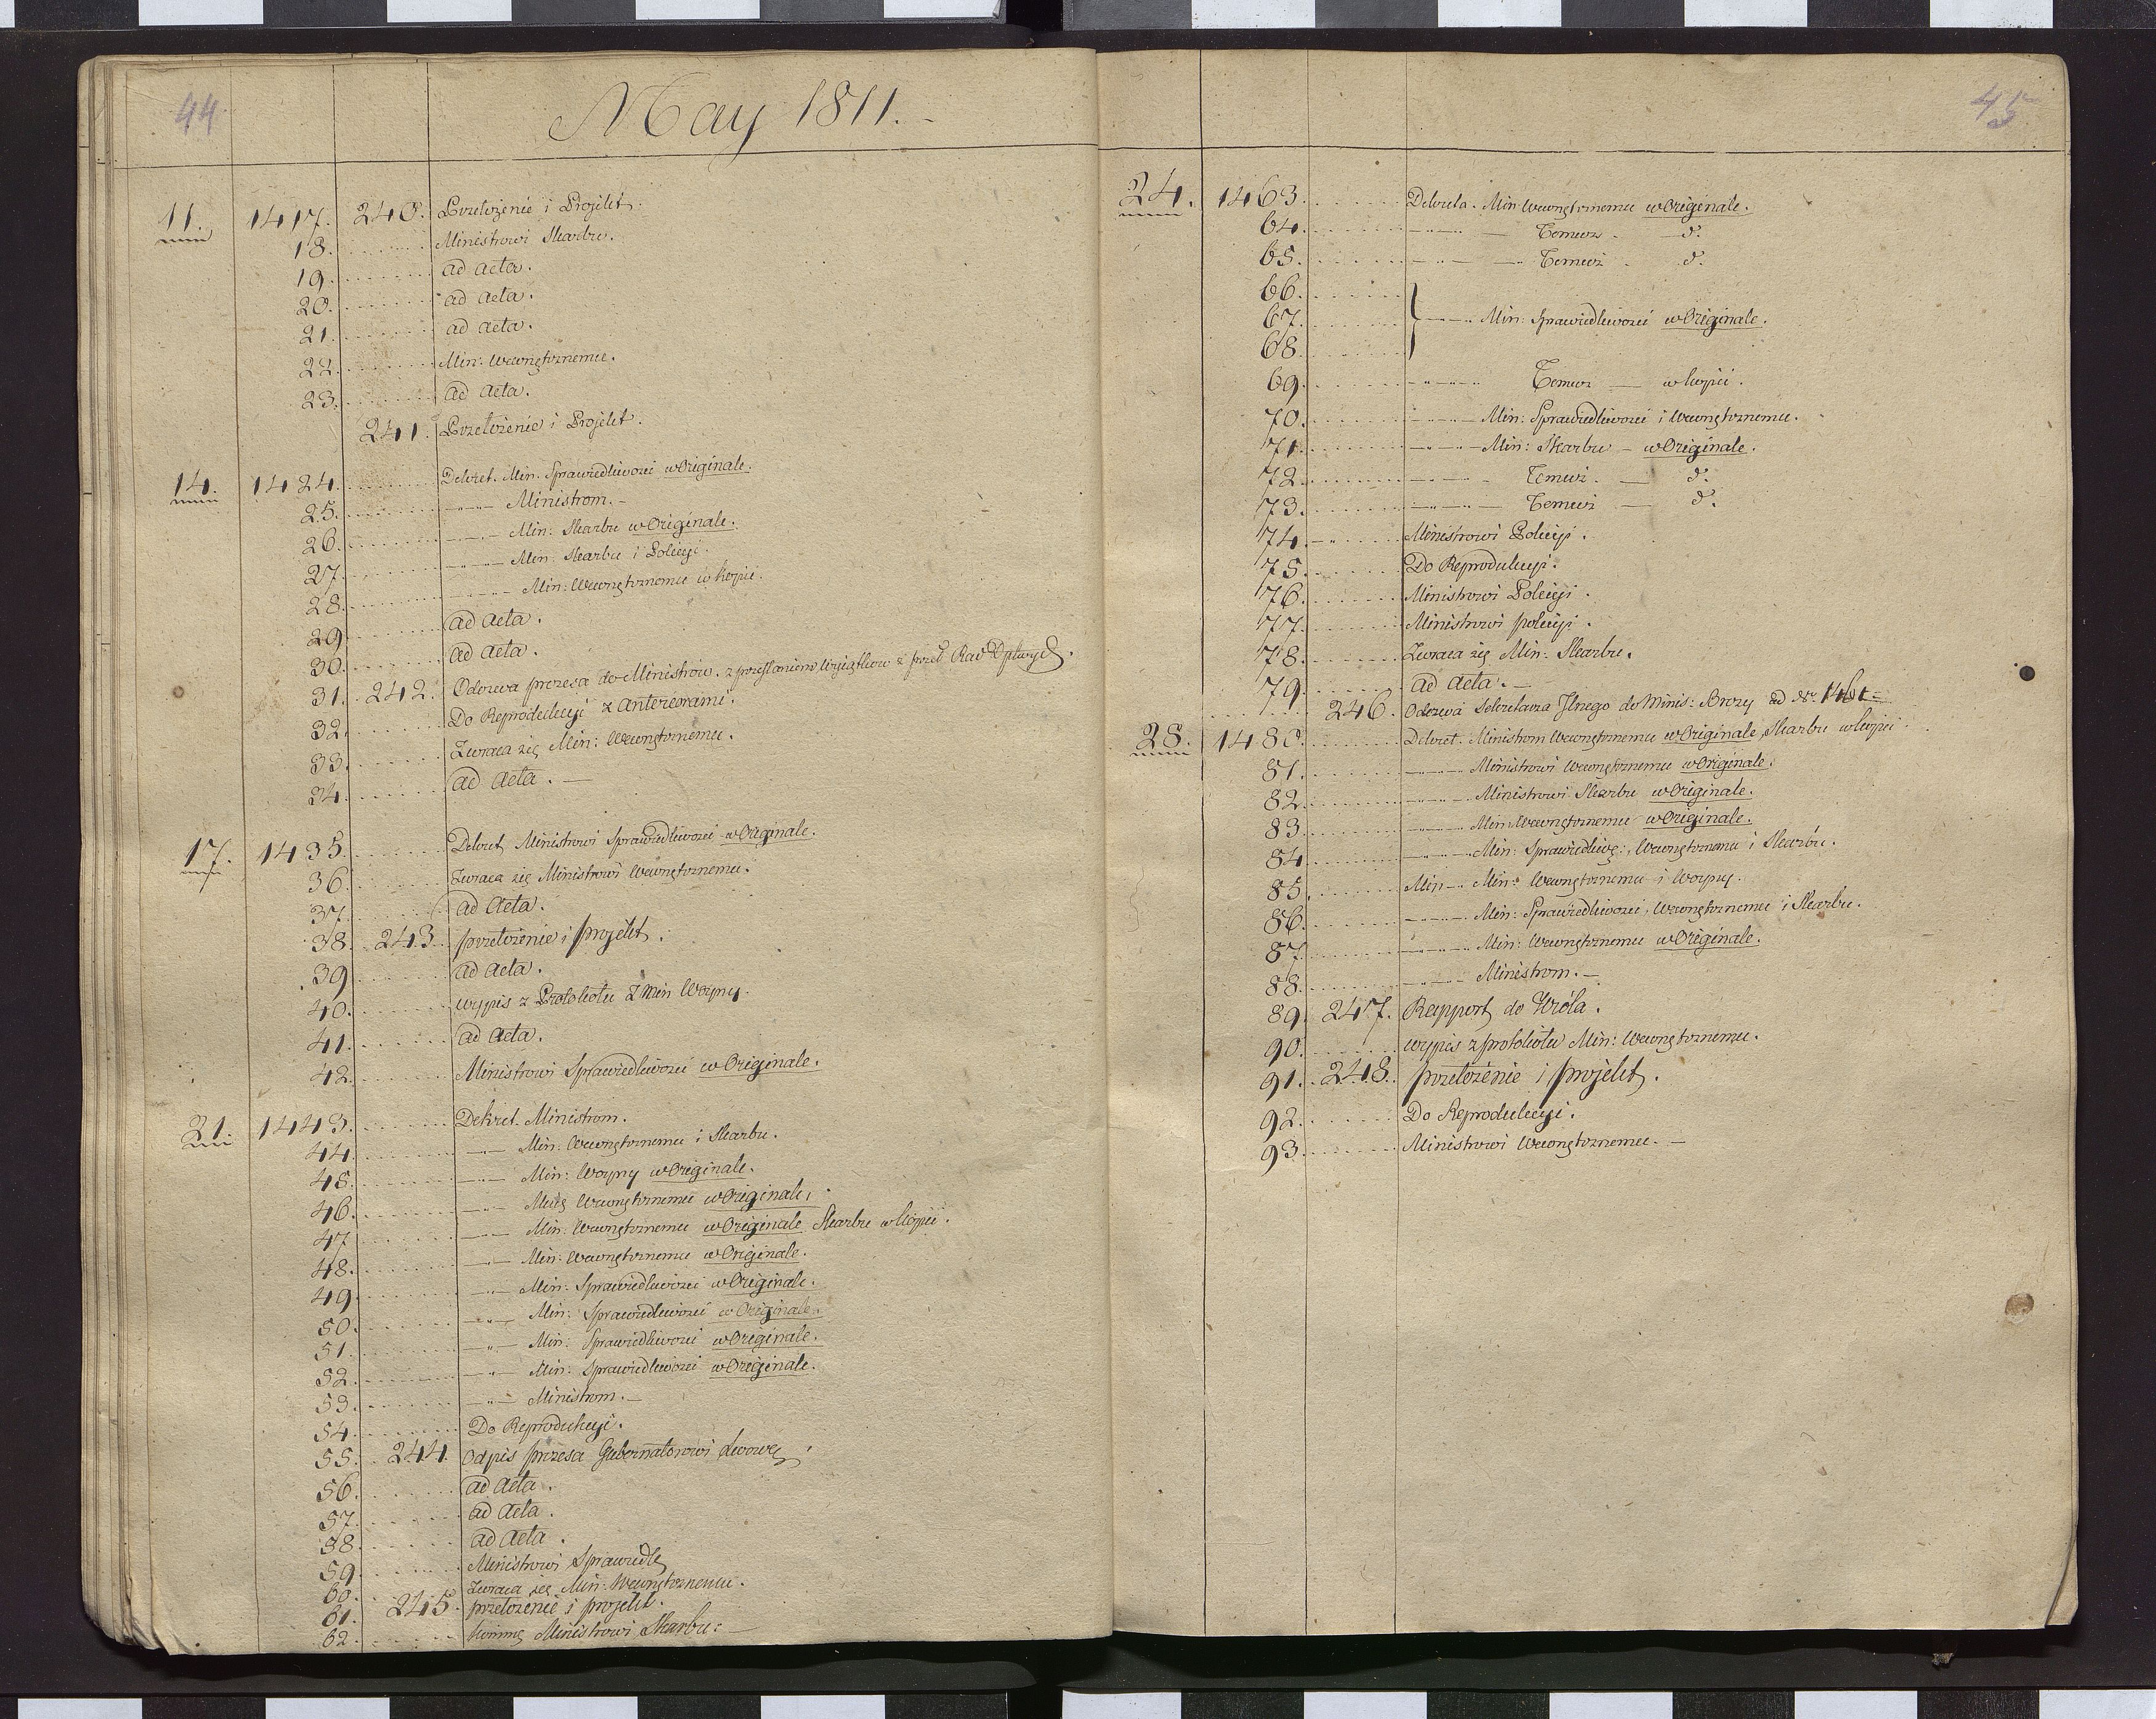 44
May 1811.
11. 1417. 240. Przełożenie i Projekt.
18. Ministrowi Skarbu.
19. ad acta.
20. ad acta.
21. ad acta.
22. Min: Wewnętrznemu.
23. ad acta.
241. Przełożenie i Projekt.
14. 1424. Dekret. Min. Sprawiedliwości w Originale.
25. Ministrom.
26. Min: Skarbu w Originale.
27. Min: Skarbu i Policyi.
28. Min: Wewnętrznemu w kopii.
29. ad acta.
30. ad acta.
31. 242. Odezwa prezesa do Ministrów. z przesłaniem wyiątków z
32. Do Reprodukcyi z anteriorami.
33. Zwraca się Min: Wewnętrznemu.
34. ad acta.
17. 1435. Dekret Ministrowi Sprawiedliwości w Originale.
36. Zwraca się Ministrowi Wewnętrznemu.
37. ad acta.
38. 243. przełożenie i projekt.
39. ad acta.
40. wypis z Protokołu Z Min Woyny.
41. ad acta.
42. Ministrowi Sprawiedliwości w Originale.
21. 1443. Dekret. Ministrom.
44. Min: Wewnętrznemu i Skarbu.
45. Min: Woyny w Originale.
46. Wewnętrznemu w Originale.
47. Min: Wewnętrznemu w Originale Skarbu w kopii.
48. Min: Wewnętrznemu w Originale.
49. Min: Sprawiedliwości w Originale.
50. Min: Sprawiedliwości w Originale.
51. Min: Sprawiedliwości w Originale.
52. Min: Sprawiedliwości w Originale.
53. Ministrom.
54. Do Reprodukcyi.
55. 244. Odpis prezesa Gubernatorowi
56. ad acta.
57. ad acta.
58. ad acta.
59. Ministrowi Sprawiedl
60. Zwraca się Min: Wewnętrznemu.
61. 245. przełożenie i projekt.
62. Ministrowi Skarbu.
45
24. 1463. Dekreta. Min Wewnętrznemu w Originale.
64. Temuż d.
65. Temuż d.
66.
67. Min: Sprawiedliwości w Originale.
68.
69. Temuż w kopii.
70. Min: Sprawiedliwości i Wewnętrznemu.
71. Min: Skarbu w Originale.
72. Temuż. d.
73. Temuż d.
74. Ministrowi Policyi.
75. Do Reprodukcyi.
76. Ministrowi Policyi.
77. Ministrowi policyi.
78. Zwraca się Min: Skarbu.
79. ad acta.
246. Odezwa Sekretarza do Minis: Brezy ad Nr 1461
28. 1480. Dekret. Ministrom Wewnętrznemu w Originale, Skarbu w kopii.
81. Ministrowi Wewnętrznemu w Originale.
82. Ministrowi Skarbu w Originale.
83. Min: Wewnętrznemu w Originale.
84. Min: Wewnętrznemu i Skarbu.
85. Min Min: Wewnętrznemu i Woyny.
86. Min: Sprawiedliwości, Wewnętrznemu i Skarbu.
87. Min: Wewnętrznemu w Originale.
88. Ministrom.
89. 247. Rapport do Króla.
90. wypis z protokołu Min: Wewnętrznemu.
91. 248. przełożenie i projekt.
92. Do Reprodukcyi.
93. Ministrowi Wewnętrznemu.